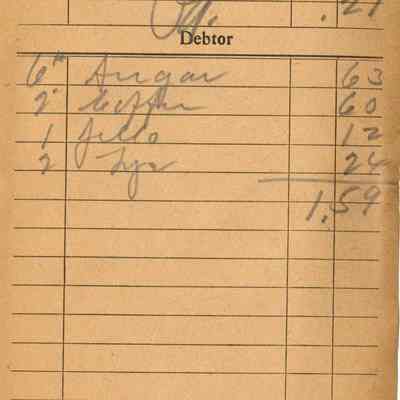 .21
Debtor
6# Sugar 63
2" Coffee 60
1 Jello 12
2 Lye 24
1.59